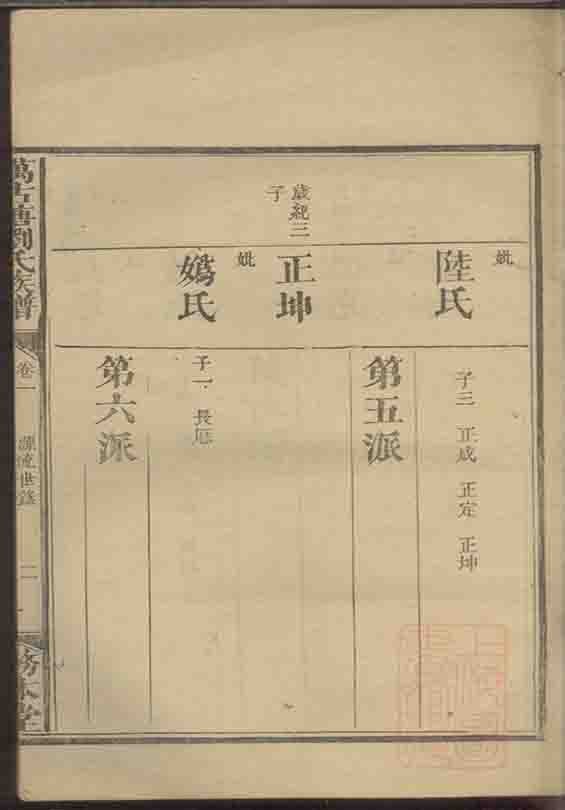 妣
陸氏
子三 正成 正定 正坤
第五派
歲紀三
子
正坤
妣
嬀氏
子一 長
第六派
萬古塘劉氏族譜
卷一
源流世錄
務本堂
上海圖
書館藏